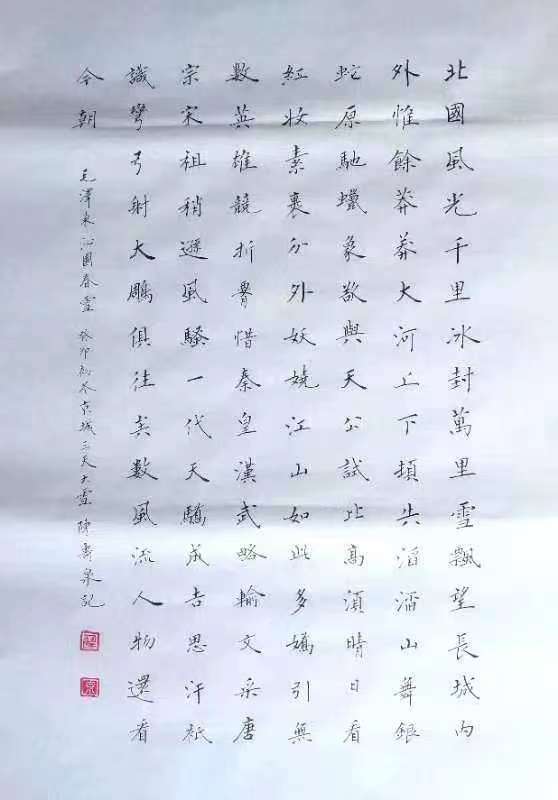 北國風光千里冰封萬里雪飄望長城内
外惟餘莽莽大河上下頓失滔滔山舞銀
蛇原馳蠟象欲與天公試比高須晴日看
紅妝素裹分外妖嬈江山如此多嬌引無
數英雄競折腰惜秦皇漢武略輸文采唐
宗宋祖稍遜風騷一代天驕成吉思汗祇
識彎弓射大鵰俱往矣數風流人物還看
今朝
毛澤東沁園春雪 癸卯初冬京城三天大雪 陳壽泉記